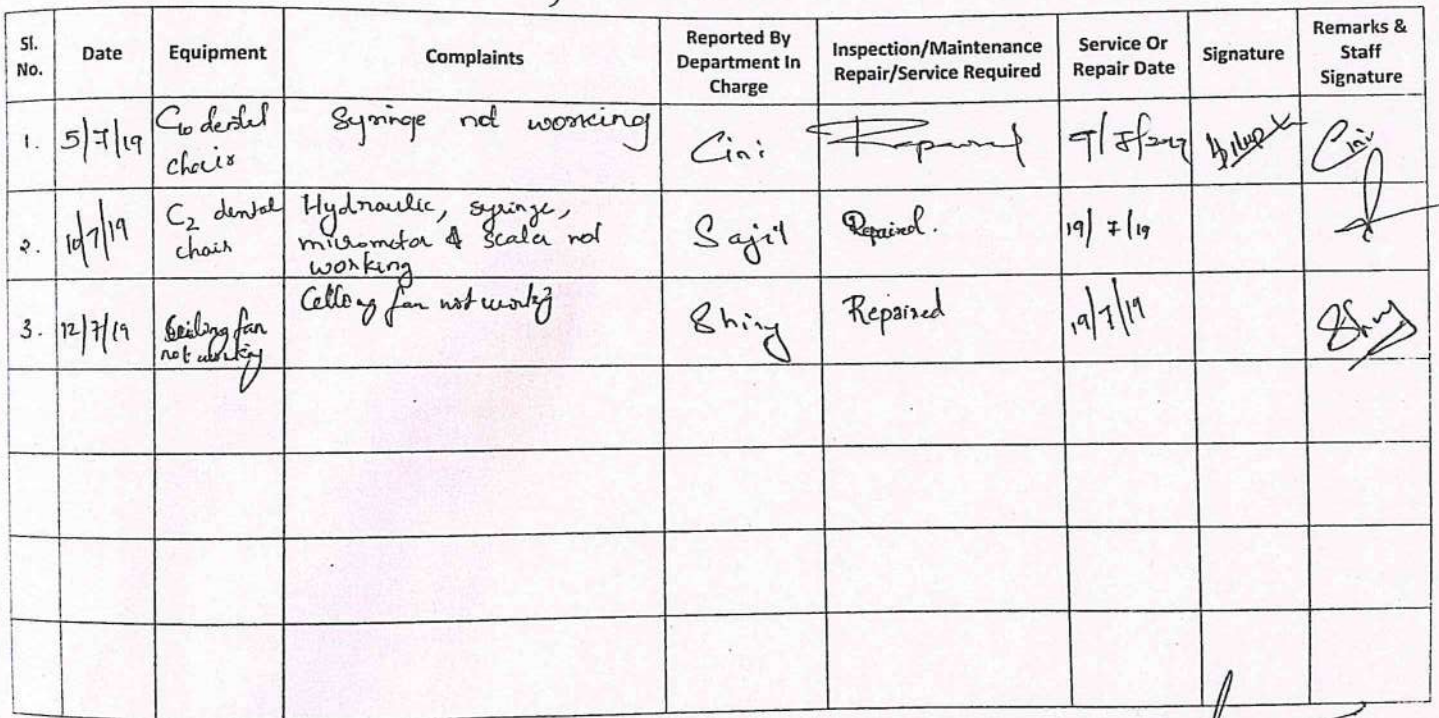 Sl. No. Date Equipment Complaints Reported By Department In Charge Inspection/Maintenance Repair/Service Required Service Or Repair Date Signature Remarks & Staff Signature
1. 5/7/19 C10 dental chair Syringe not working Cini Repaired Cini
2. 10/7/19 C2 dental chair Hydraulic, syringe, micromotor & scaler not working Sajil Repaired. 19/7/19
3. 12/7/19 Ceiling fan not working Ceiling fan not working Shiny Repaired 19/7/19 Shiny